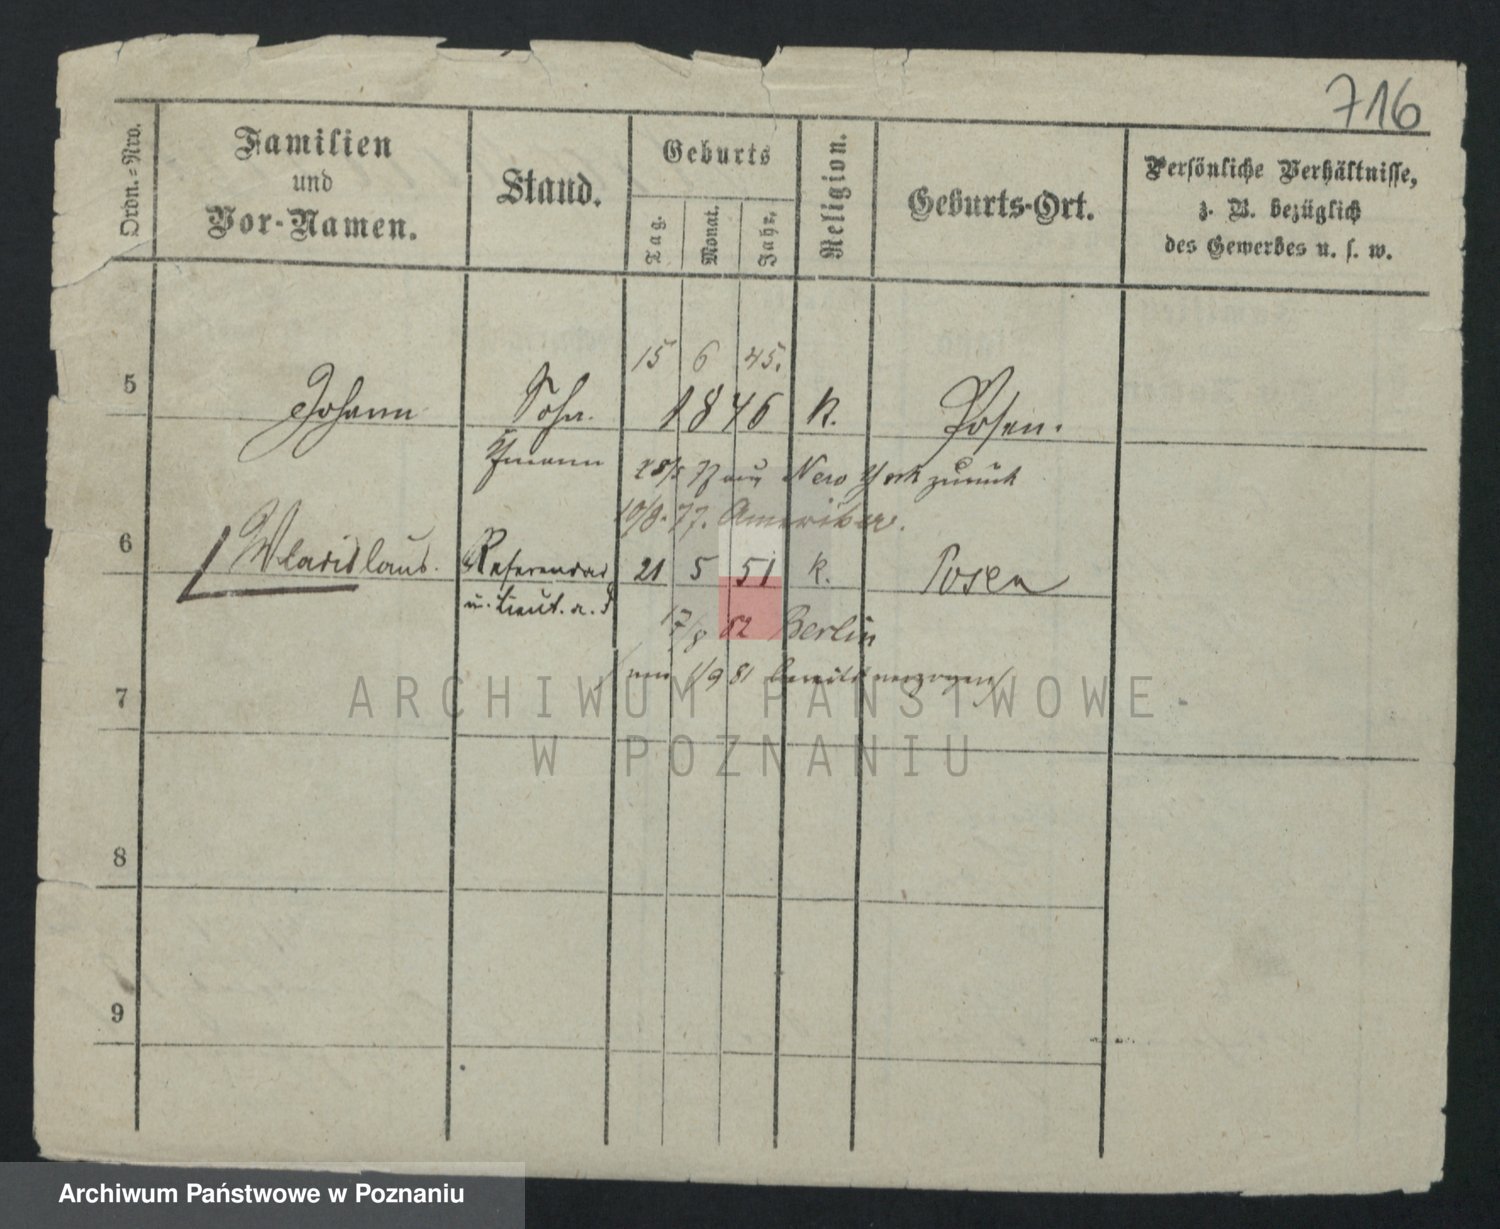 716
Ordn.-Nro.
Familien
und
Vor-Namen.
Stand.
Geburts
Tag.
Monat.
Jahr.
Religion.
Geburts-Ort.
Persönliche Verhältnisse,
z. B. bezüglich
des Gewerbes u. s. w.
15 6 45.
5 Johann Sohn. 1846 k. Posen.
Kfmann 28/5 77 aus New York zurück
10/8. 77. Amerika.
6 Wladislaus. Referendar 21 5 51 k. Posen
u. Lieut. a. D
17/8 82 Berlin
1/9 81 bereits verzogen
7
ARCHIWUM PAŃSTWOWE
W POZNANIU
8
9
Archiwum Państwowe w Poznaniu